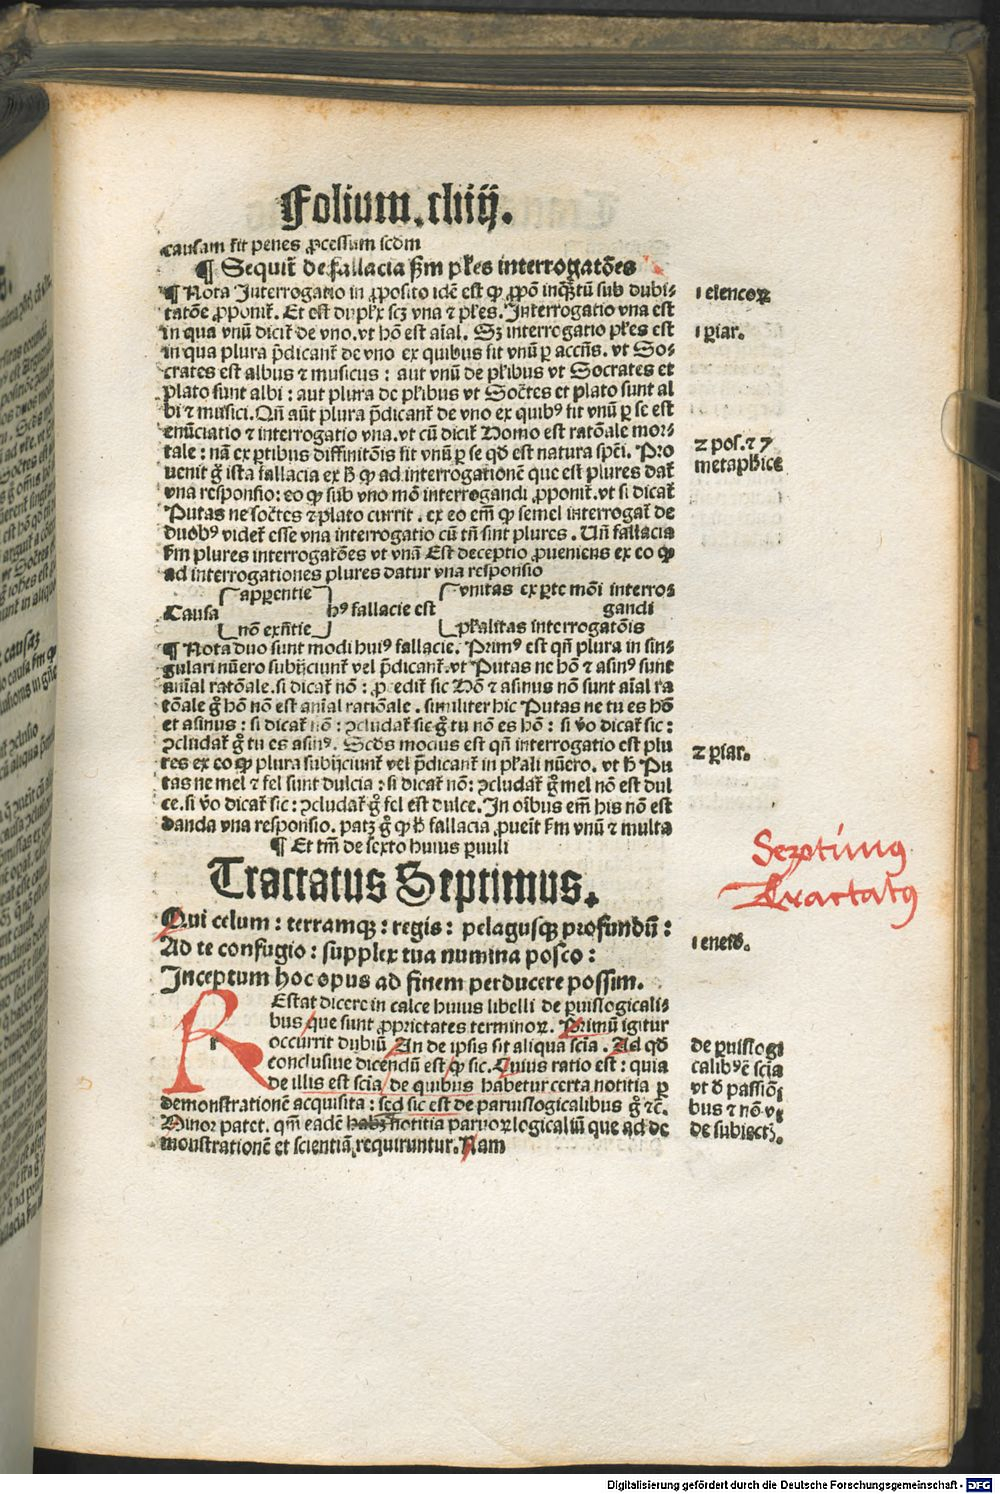 Folium. cliiij.
causam fit penes ꝓcessum scdm
¶ Sequit̃ de fallacia ẜm pl̃es interrogatões
¶ Nota Interrogatio in ꝓposito idẽ est qꝫ ꝓpõ inq̃tũ sub dubi-
tatõe ꝓponit̃. Et est duplex scꝫ vna ⁊ pl̃es. Interrogatio vna est
in qua vnũ dicit̃ de vno. vt hõ est aĩal. Sꝫ interrogatio pl̃es est
in qua plura p̃dicant̃ de vno ex quibus fit vnũ ꝑ accñs. vt So-
crates est albus ⁊ musicus: aut vnũ de pl̃ibus vt Socrates et
Plato sunt albi: aut plura de pl̃ibus vt Socr̃tes et plato sunt al
bi ⁊ musici. Qñ aũt plura p̃dicant̃ de vno ex quibꝰ fit vnũ ꝑ se est
enũciatio ⁊ interrogatio vna. vt cũ dicit̃ Homo est ratõale mor-
tale: nã ex ꝑtibus diffinitõis fit vnũ ꝑ se qd̃ est natura spẽi. Pro
uenit g̃ ista fallacia ex h̃ qꝫ ad interrogationẽ que est plures dat̃
vna responsio: eo qꝫ sub vno mõ interrogandi ꝓponit̃. vt si dicat̃
Putas ne socr̃tes ⁊ plato currit. ex eo em̃ qꝫ semel interrogat̃ de
duobꝰ videt̃ esse vna interrogatio cũ tñ sint plures. Uñ fallacia
ẜm plures interrogatões vt vnã Est deceptio ꝓueniens ex eo qꝫ
ad interrogationes plures datur vna responsio
apparentie vnitas ex ꝑte mõi interro-
Causa hꝰ fallacie est gandi
nõ exñtie pl̃alitas interrogatõis
¶ Nota duo sunt modi huiꝰ fallacie. Primꝰ est qñ plura in sin-
gulari nũero subijciunt̃ vel p̃dicant̃. vt Putas ne hõ ⁊ asinꝰ sunt
aĩal ratõale. si dicat̃ nõ: ꝓcedit̃ sic Hõ ⁊ asinus nõ sunt aĩal ra
tõale g̃ hõ nõ est aĩal ratiõale. similiter hic Putas ne tu es hõ
et asinus: si dicat̃ nõ: ꝯcludat̃ sic g̃ tu nõ es hõ: si ṽo dicat̃ sic:
ꝯcludat̃ g̃ tu es asinꝰ. Scd̃s modus est qñ interrogatio est plu
res ex eo qꝫ plura subijciunt̃ vel p̃dicant̃ in pl̃ali nũero. vt h̃ Pu
tas ne mel ⁊ fel sunt dulcia: si dicat̃ nõ: ꝯcludat̃ g̃ mel nõ est dul
ce. si ṽo dicat̃ sic: ꝯcludat̃ g̃ fel est dulce. In oĩbus em̃ his nõ est
danda vna responsio. patꝫ g̃ qꝫ h̃ fallacia ꝓueit̃ ẜm vnũ ⁊ multa
¶ Et tm̃ de sexto huius ꝑuuli
Tractatus Septimus.
Qui celum: terramqꝫ: regis: pelagusqꝫ profundũ:
Ad te confugio: supplex tua numina posco:
Inceptum hoc opus ad finem perducere possim.
REstat dicere in calce huius libelli de ꝑuislogicali-
bus que sunt ꝓprietates terminoꝝ. Primũ igitur
occurrit dubiũ An de ipsis sit aliqua scĩa. Ad qd̃
conclusiue dicendũ est qꝫ sic. Cuius ratio est: quia
de illis est scĩa de quibus habetur certa notitia ꝑ
demonstrationẽ acquisita: sed sic est de paruislogicalibus g̃ ⁊c̃.
Minor patet. qm̃ eadẽ habꝫ notitia paruoꝝlogicaliũ que ad de
monstrationẽ et scientiã requiruntur. Nam
1 elencoꝝ
1 ꝑiar.
2 pos. ⁊ 7
metaph̃ice
2 ꝑiar.
Septimus
Tractatus
1 eneid̃.
de ꝑuislogi
calibꝰ ẽ scĩa
vt d̃ passiõi
bus ⁊ nõ vt
de subiectꝭ.
Digitalisierung gefördert durch die Deutsche Forschungsgemeinschaft - DFG